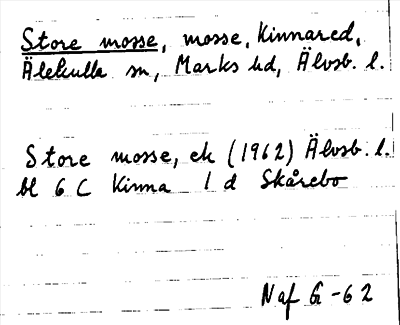 Store mosse, mosse, Kinnared,
Älekulla sn, Marks hd, Älvsb. l.
Store mosse, ek (1962) Älvsb. l.
bl 6 C Kinna 1 d Skårebo
Naf G-62